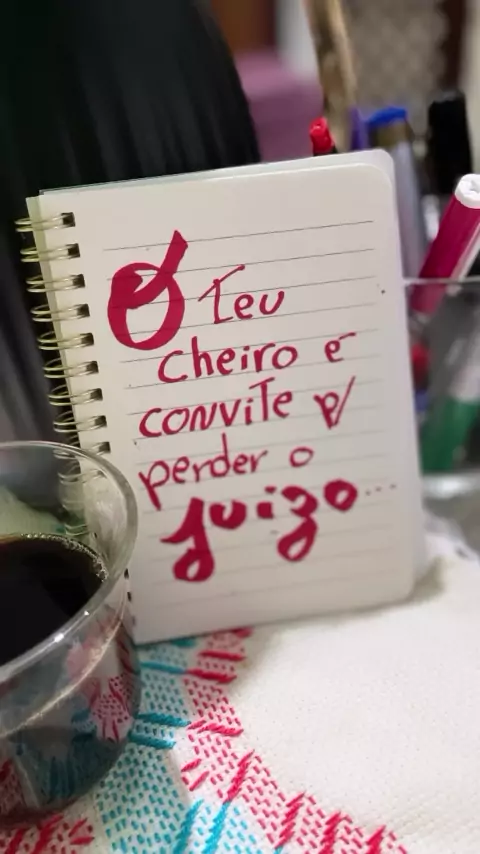 O Teu
cheiro é
convite p/
perder o
juizo...